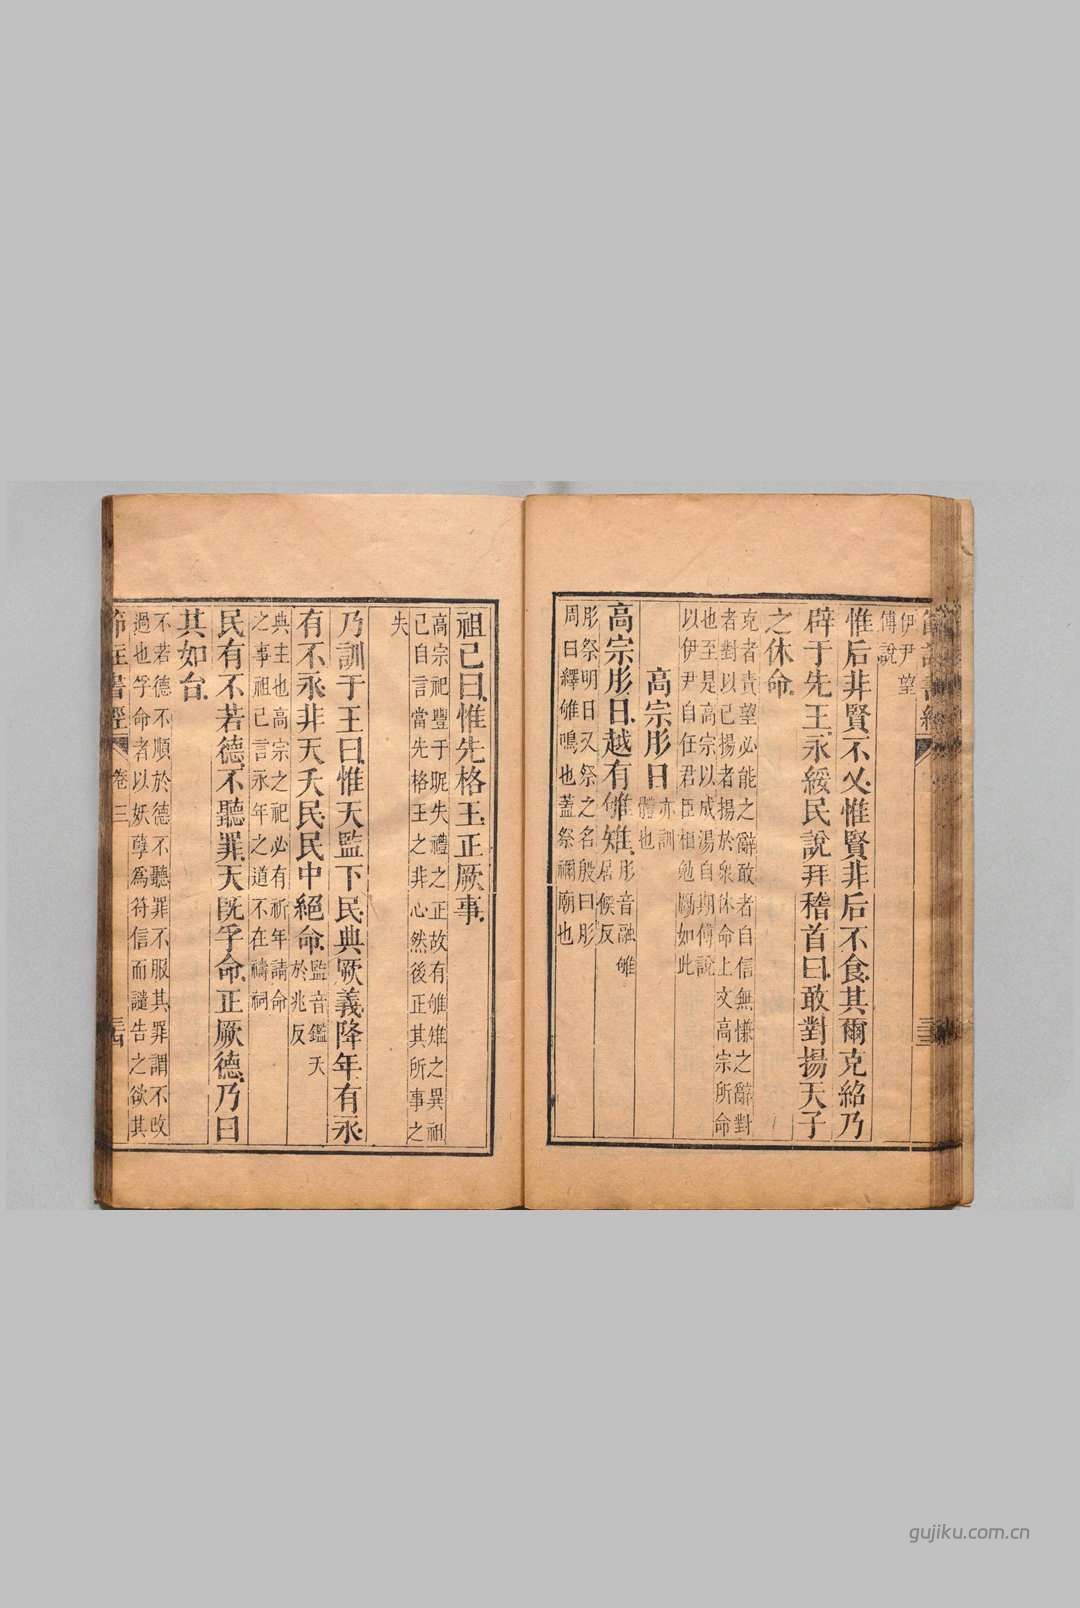 伊尹望
傅說
惟后非賢不乂惟賢非后不食其爾克紹乃
辟于先王永綏民說拜稽首曰敢對揚天子
之休命
克者責望必能之辭敢者自信無慊之辭對
者對以己揚者揚於衆休命上文高宗所命
也至是高宗以成湯自期傅說
以伊尹自任君臣相勉勵如此
高宗肜日
亦訓
體也
高宗肜日越有雊雉
肜音融雊
居候反
肜祭明日又祭之名殷曰肜
周曰繹雊鳴也蓋祭禰廟也
祖己曰惟先格王正厥事
高宗祀豐于昵失禮之正故有雊雉之異祖
己自言當先格王之非心然後正其所事之
失
乃訓于王曰惟天監下民典厥義降年有永
有不永非天夭民民中絕命
監音鑑夭
於兆反
典主也高宗之祀必有祈年請命
之事祖己言永年之道不在禱祠
民有不若德不聽罪天既孚命正厥德乃曰
其如台
不若德不順於德不聽罪不服其罪謂不改
過也孚命者以妖孽爲符信而譴告之欲其
節註書經
卷三
三十四
gujiku.com.cn